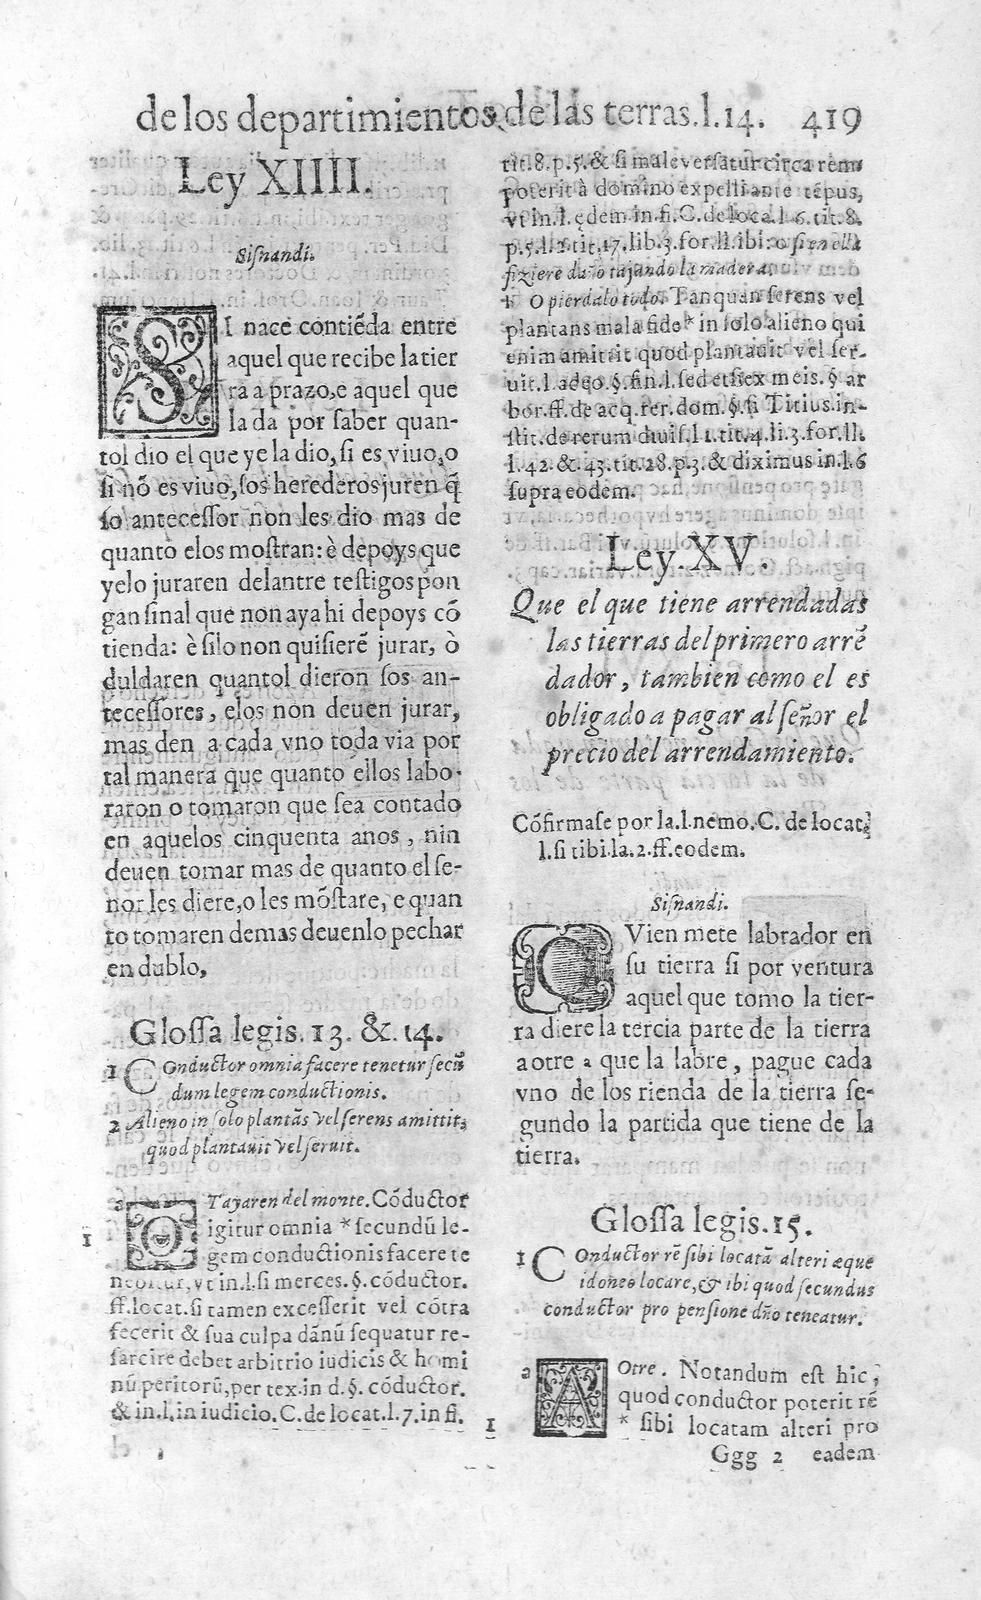 de los departimientos de las terras.l.14. 419
Ley XIIII.
Sisnandi.
SI nace contiẽda entre
aquel que recibe la tier
ra a prazo,e aquel que
la da por saber quan-
tol dio el que ye la dio, si es viuo,o
si nõ es viuo, sos herederos juren q̃
so antecessor non les dio mas de
quanto elos mostran: è depoys que
yelo juraren delantre testigos pon
gan sinal que non aya hi depoys cõ
tienda: è silo non quisierẽ jurar, ò
duldaren quantol dieron sos an-
tecessores, elos non deuen jurar,
mas den a cada vno toda via por
tal manera que quanto ellos labo-
raron o tomaron que sea contado
en aquelos cinquenta anos, nin
deuen tomar mas de quanto el se-
nor les diere,o les mõstare, e quan
to tomaren demas deuenlo pechar
en dublo,
Glossa legis.13. &.14.
1 COnductor omnia facere tenetur secũ
dum legem conductionis.
2 Alieno in solo plantãs vel serens amittit,
quod plantauit vel seruit.
a TOTayaren del monte. Cõductor
igitur omnia * secundũ le-
gem conductionis facere te
netur, vt in.l.si merces.§.cõductor.
ff.locat.si tamen excesserit vel cõtra
fecerit & sua culpa dãnũ sequatur re-
sarcire debet arbitrio iudicis & homi
nũ peritorũ, per tex.in d.§. cõductor.
& in.l.in iudicio.C.de locat.l.7.in fi.
1
tit.8.p.5.& si male versatur circa rem
poterit à domino expelli ante tẽpus,
vt in.l.ędem in fi.C.de loca.l.6.tit.8.
p.5.l.2.tit.17.lib.3.for.ll.ibi: o si en ella
fiziere daño tajando la madera.
b O pierdalo todo. Tanquan serens vel
plantans mala fide * in solo alieno qui
enim amittit quod plantauit vel ser-
uit.l.adeo.§.fin.l.sed etsi ex meis.§ ar
bor.ff.de acq.rer.dom.§.si Titius.in-
stit.de rerum diuis.l 1.tit.4.li.3.for.ll.
l.42.&.43.tit.28.p.3.& diximus in.l.6
supra eodem.
Ley.XV.
Que el que tiene arrendadas
las tierras del primero arrẽ
dador, tambien como el es
obligado a pagar al señor el
precio del arrendamiento.
Cõfirmase por la.l.nemo.C. de locat.
l.si tibi.la.2.ff.eodem.
Sisnandi.
QVien mete labrador en
su tierra si por ventura
aquel que tomo la tier-
ra diere la tercia parte de la tierra
a otre a que la labre, pague cada
vno de los rienda de la tierra se-
gundo la partida que tiene de la
tierra.
Glossa legis.15.
1 COnductor rẽ sibi locatã alteri æque
idoneo locare,& ibi quod secundus
conductor pro pensione dño teneatur.
a AOtre. Notandum est hic,
quod conductor poterit rẽ
* sibi locatam alteri pro
1
Ggg 2 eadem